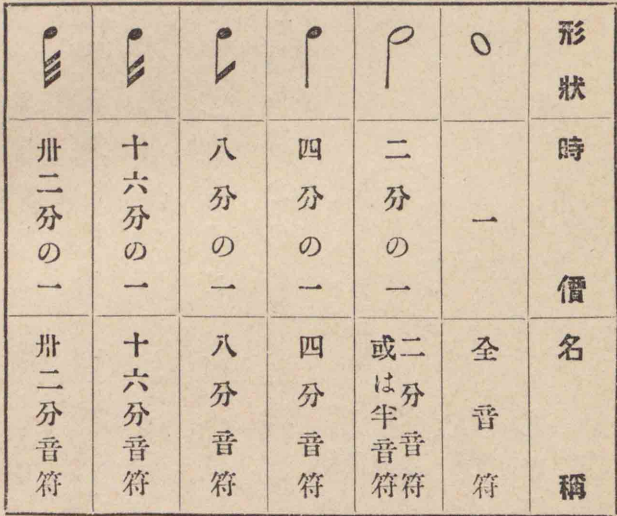 形狀
時價
名稱
一
全音符
二分の一
二分音符
或は半音符
四分の一
四分音符
八分の一
八分音符
十六分の一
十六分音符
卅二分の一
卅二分音符